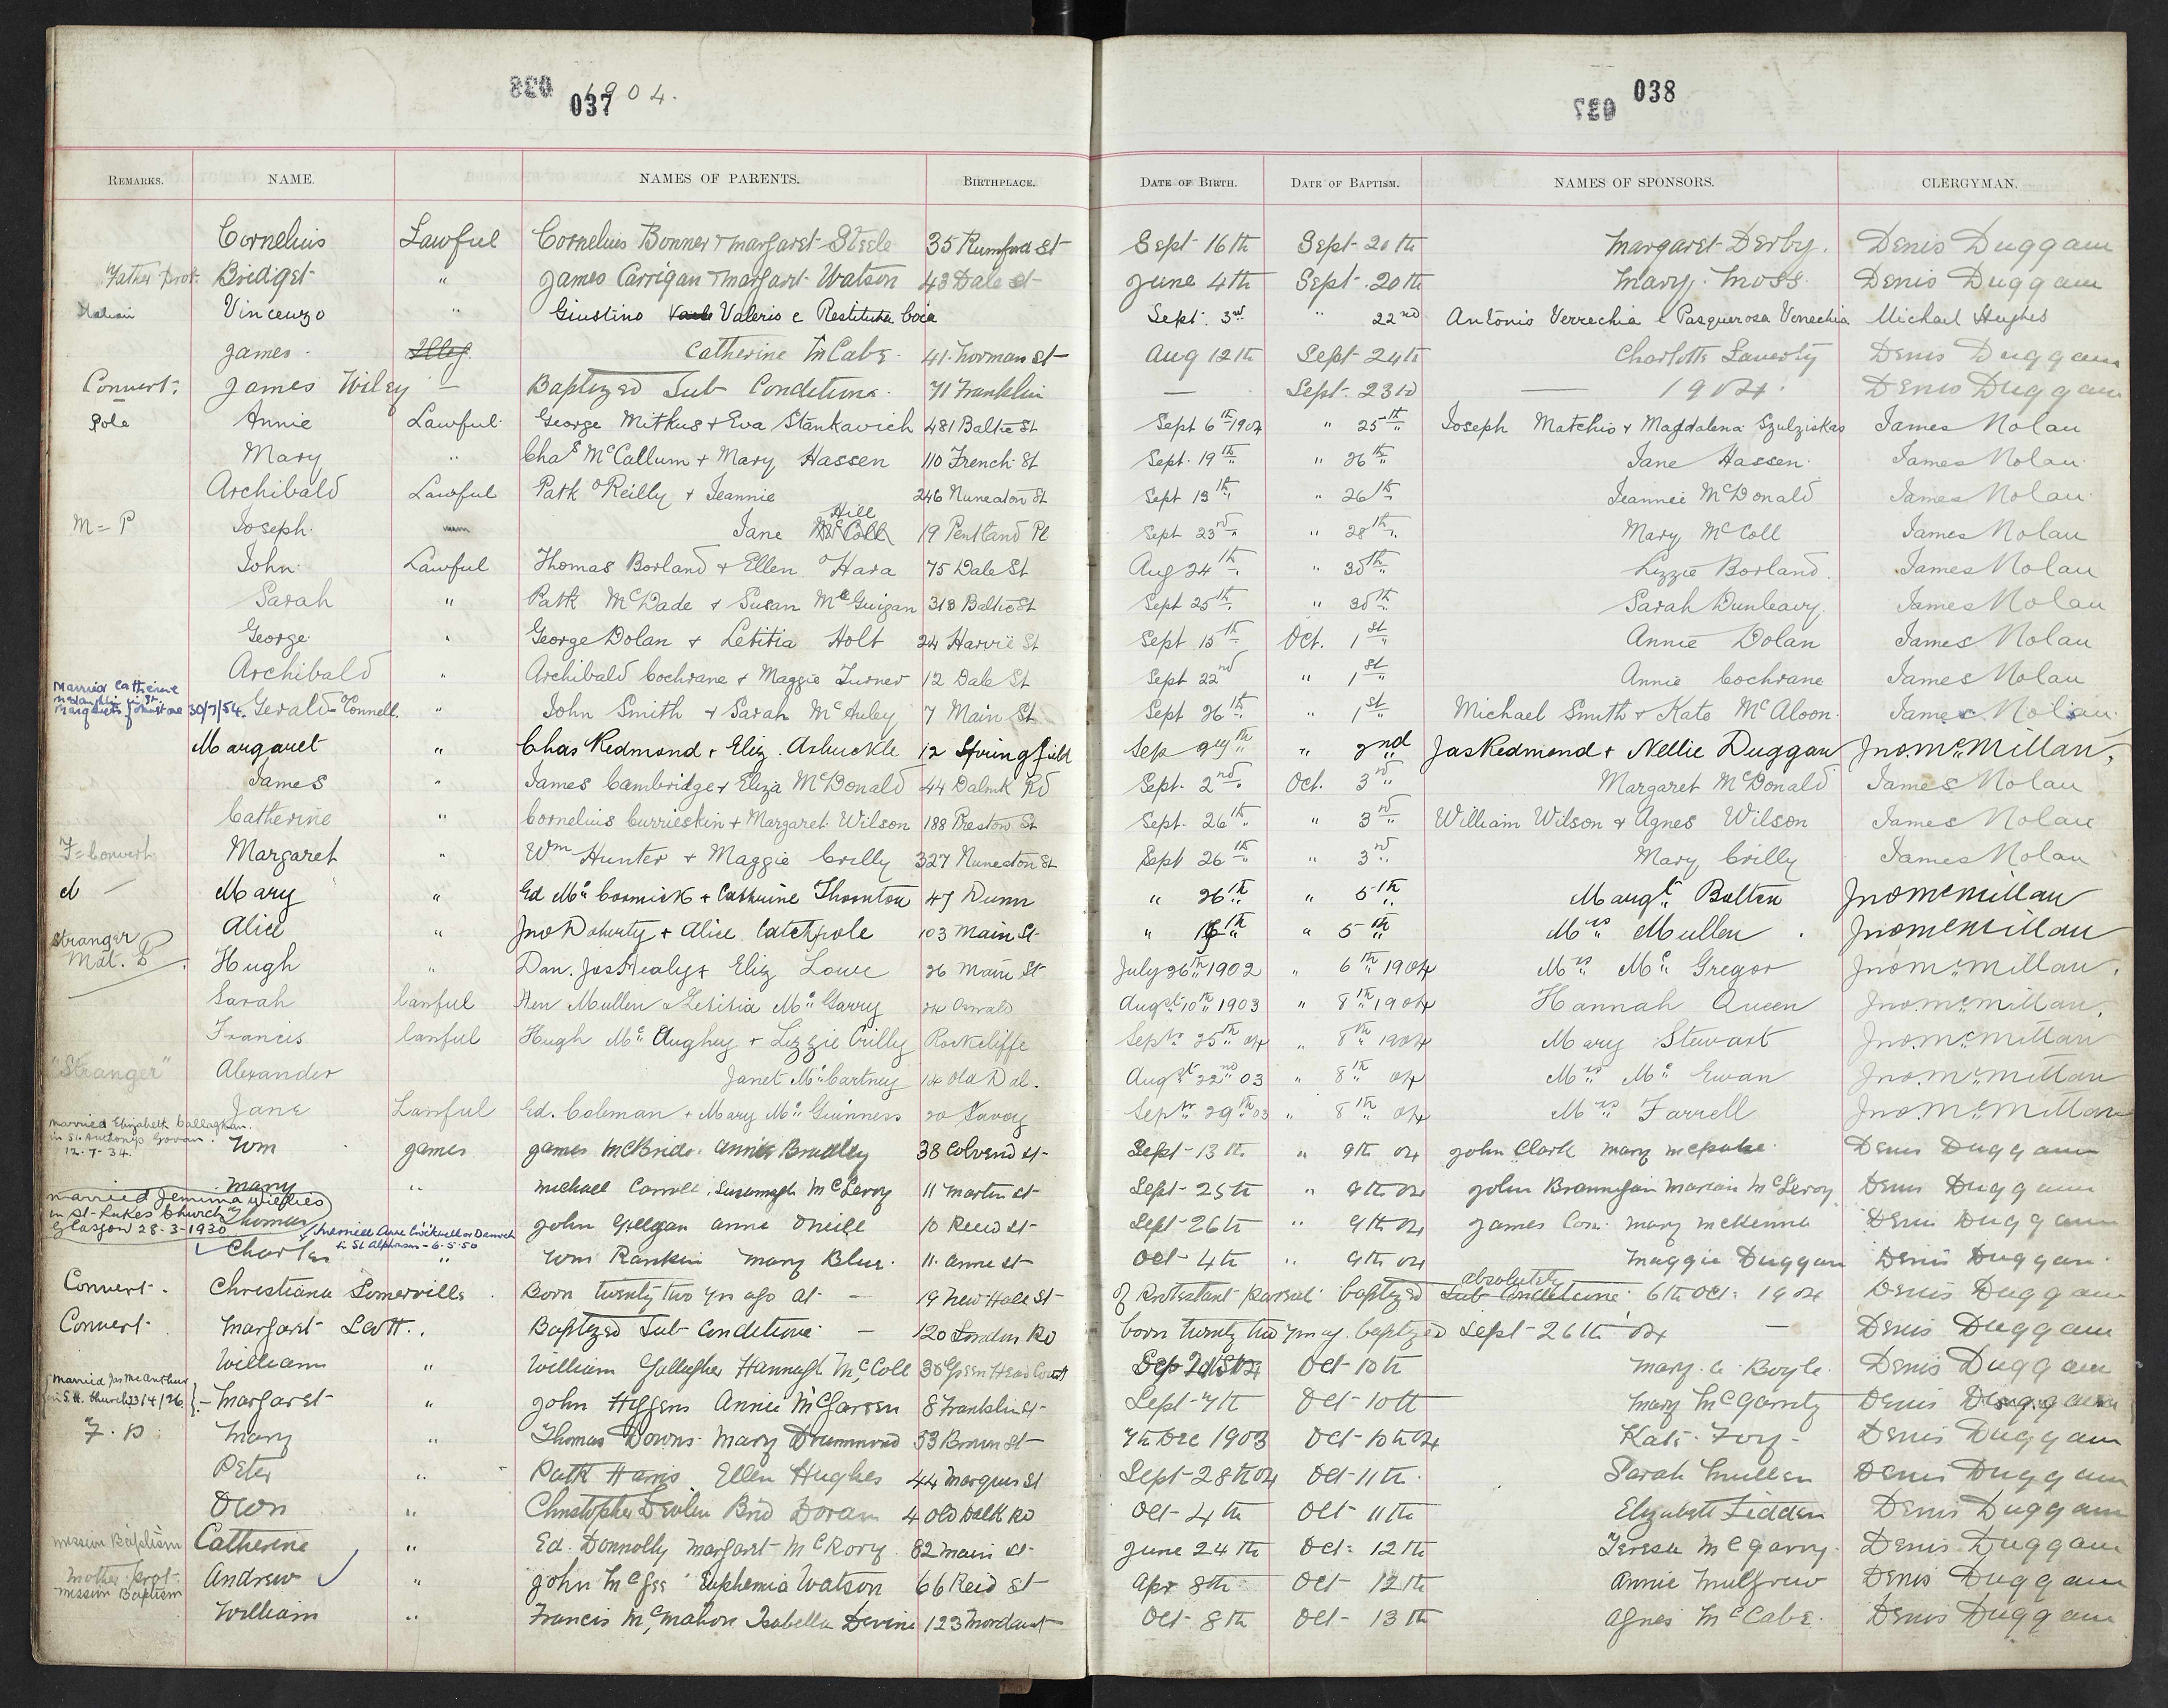 037 1904.
038
REMARKS. NAME. NAMES OF PARENTS. BIRTHPLACE. DATE OF BIRTH. DATE OF BAPTISM. NAMES OF SPONSORS. CLERGYMAN.
Cornelius Lawful Cornelius Bonner + Margaret Steele 35 Rumford St Sept 16th Sept 20th Margaret Derby. Denis Duggan
Father Prot. Bridiget " James Carrigan + Margart Watson 43 Dale St June 4th Sept. 20th Mary Moss. Denis Duggan
Italian Vincenzo " Giustino Valerio e Restituta Coia Sept. 3rd " 22nd Antonio Verrechia e Pasquerosa Verrechia Michael Hughes
James. Illeg. Catherine McCabe. 41. Norman St Aug 12th Sept 24th Charlotte Laverty Denis Duggan
Convert. James Wiley — Baptized Sub Conditione. 71 Franklin — Sept. 23rd — 1904. Denis Duggan
Pole Annie Lawful George Mitkus + Eva Stankavich 481 Baltic St Sept 6th 1904 " 25th Joseph Matchis + Magdalena Szulziskas James Nolan
Mary " Chas McCallum + Mary Hassen 110 French St Sept. 19th " 26th Jane Hassen. James Nolan
Archibald Lawful Patk O'Reilly + Jeannie 246 Nuneaton St Sept 13th " 26th Jeannie McDonald James Nolan
M = P Joseph. Jane Hill McColl 19 Pentland Pl Sept 23rd " 28th Mary McColl James Nolan
John. Lawful Thomas Borland + Ellen O'Hara 75 Dale St Aug 24th " 30th Lizzie Borland. James Nolan
Sarah " Patk McDade + Susan McGuigan 313 Baltic St Sept 25th " 30th Sarah Dunleavy. James Nolan
George " George Dolan + Letitia Holt 24 Harvie St Sept 15th Oct. 1st Annie Dolan James Nolan
Archibald " Archibald Cochrane + Maggie Turner 12 Dale St Sept 22nd " 1st Annie Cochrane James Nolan
Married Catherine McLaughlin in St. Margaret's Johnstone 30/7/54. Gerald O'Connell. " John Smith + Sarah McAuley 7 Main St Sept 26th " 1st Michael Smith + Kate McAloon. James Nolan
Margaret " Chas Redmond + Eliz. Arbuckle 12 Springfield Sep 29th " 2nd Jas Redmond + Nellie Duggan Jno. McMillan.
James " James Cambridge + Eliza McDonald 44 Dalmk Rd Sept. 2nd Oct. 3rd Margaret McDonald James Nolan
Catherine " Cornelius Currieskin + Margaret Wilson 188 Preston St Sept. 26th " 3rd William Wilson + Agnes Wilson James Nolan
F = Convert Margaret " Wm Hunter + Maggie Crilly 327 Nuneaton St Sept 26th " 3rd Mary Crilly James Nolan
Mary " Ed McCormick + Catherine Thornton 47 Dunn " 26th " 5th Margt Bolton Jno McMillan
Alice " Jno Doherty + Alice Catchpole 103 Main St " 16th " 5th Mrs Mullen. Jno McMillan
Stranger Mat. B Hugh " Dan. Jas Healy + Eliz Lowe 26 Main St July 26th 1902 " 6th 1904 Mrs McGregor Jno McMillan.
Sarah lawful Hen Mullen + Letitia McGarry 24 Oswald Augst 10th 1903 " 8th 1904 Hannah Queen Jno. McMillan.
Francis lawful Hugh McAughey + Lizzie Crilly Rockcliffe Septr 25th 04 " 8th 1904 Mary Stewart Jno. McMillan
"Stranger" Alexander Janet McCartney 14 Old Dal. Augst 22nd 03 " 8th 04 Mrs McEwan Jno. McMillan
Jane Lawful Ed. Coleman + Mary McGuinness 20 Savoy Septr 29th 03 " 8th 04 Mrs Farrell Jno. McMillan
married Elizabeth Callaghan. in St. Anthonys Govan. 12.7.34. Wm James James McBride. Annie Bradley 38 Colvend St Sept 13th " 9th 04 John Clark Mary McPake. Denis Duggan
Mary " Michael Carroll. Susannagh McLeroy 11 Martin St Sept 25th " 9th 04 John Brannigan Marian McLeroy Denis Duggan
married Jemima Wieflies in St. Lukes Church Glasgow 28-3-1930 Thomas John Gilligan Anne Oneill 10 Reid St Sept 26th " 9th 04 James Com. Mary McKenna Denis Duggan
in St Alphonsus - 6.5.50 Charles " Wm Rankin Mary Blue. 11. Anne St Oct 4th " 9th 04 Maggie Duggan Denis Duggan.
Convert. Christiana Somerville. Born twenty two yrs ago at — 19 New Hall St of Protestant parents baptized absolutely Sub Conditione. 6th Oct. 1904 Denis Duggan
Convert Margaret Scott.. Baptized Sub Conditione — 120 London Rd born twenty two yrs ag. baptized Sept 26th 04 — Denis Duggan
William " William Gallagher Hannagh McColl 30 Green Head Court Sep 21st 04 Oct 10th Mary. A. Boyle. Denis Duggan
Married Jas McArthur in S.H. Church 23/4/26 }- Margaret " John Higgens Annie McGarren 8 Franklin St Sept 7th Oct 10th Mary McGarrity Denis Duggan
F. P. Mary " Thomas Downs Mary Drummond 53 Brown St 7th Dec 1903 Oct 10th 04 Kate Foy - Denis Duggan
Peter " Patk Harris Ellen Hughes 44 Marquis St Sept 28th 04 Oct 11th. Sarah Mullen Denis Duggan
Dion " Christopher Devlin Brid Doran 4 Old Dalk Rd Oct 4th Oct 11th Elizabeth Fidden Denis Duggan
mission Baptism Catherine " Ed. Donnolly Margaret McRory. 82 Main St June 24th Oct. 12th Teresa McGarry. Denis Duggan
Mother Prot. mission Baptism Andrew " John McGee Euphemia Watson 66 Reid St Apr 8th Oct 12th Annie Mulgrew Denis Duggan
William " Francis McMahon Isabella Devine 123 Mordaunt Oct. 8th Oct. 13th Agnes McCabe. Denis Duggan